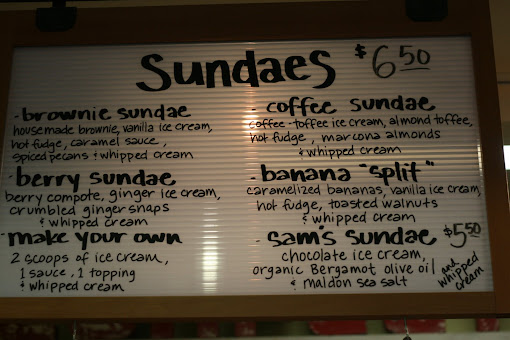 Sundaes $6.50
- brownie sundae
housemade brownie, vanilla ice cream,
hot fudge, caramel sauce,
spiced pecans & whipped cream
- berry sundae
berry compote, ginger ice cream,
crumbled gingersnaps
& whipped cream
- make your own
2 scoops of ice cream,
1 sauce, 1 topping
& whipped cream
- coffee sundae
coffee-toffee ice cream, almond toffee,
hot fudge, marcona almonds
& whipped cream
- banana "split"
caramelized bananas, vanilla ice cream,
hot fudge, toasted walnuts
& whipped cream
- sam's sundae $5.50
chocolate ice cream,
organic Bergamot olive oil
& maldon sea salt
and
whipped
cream